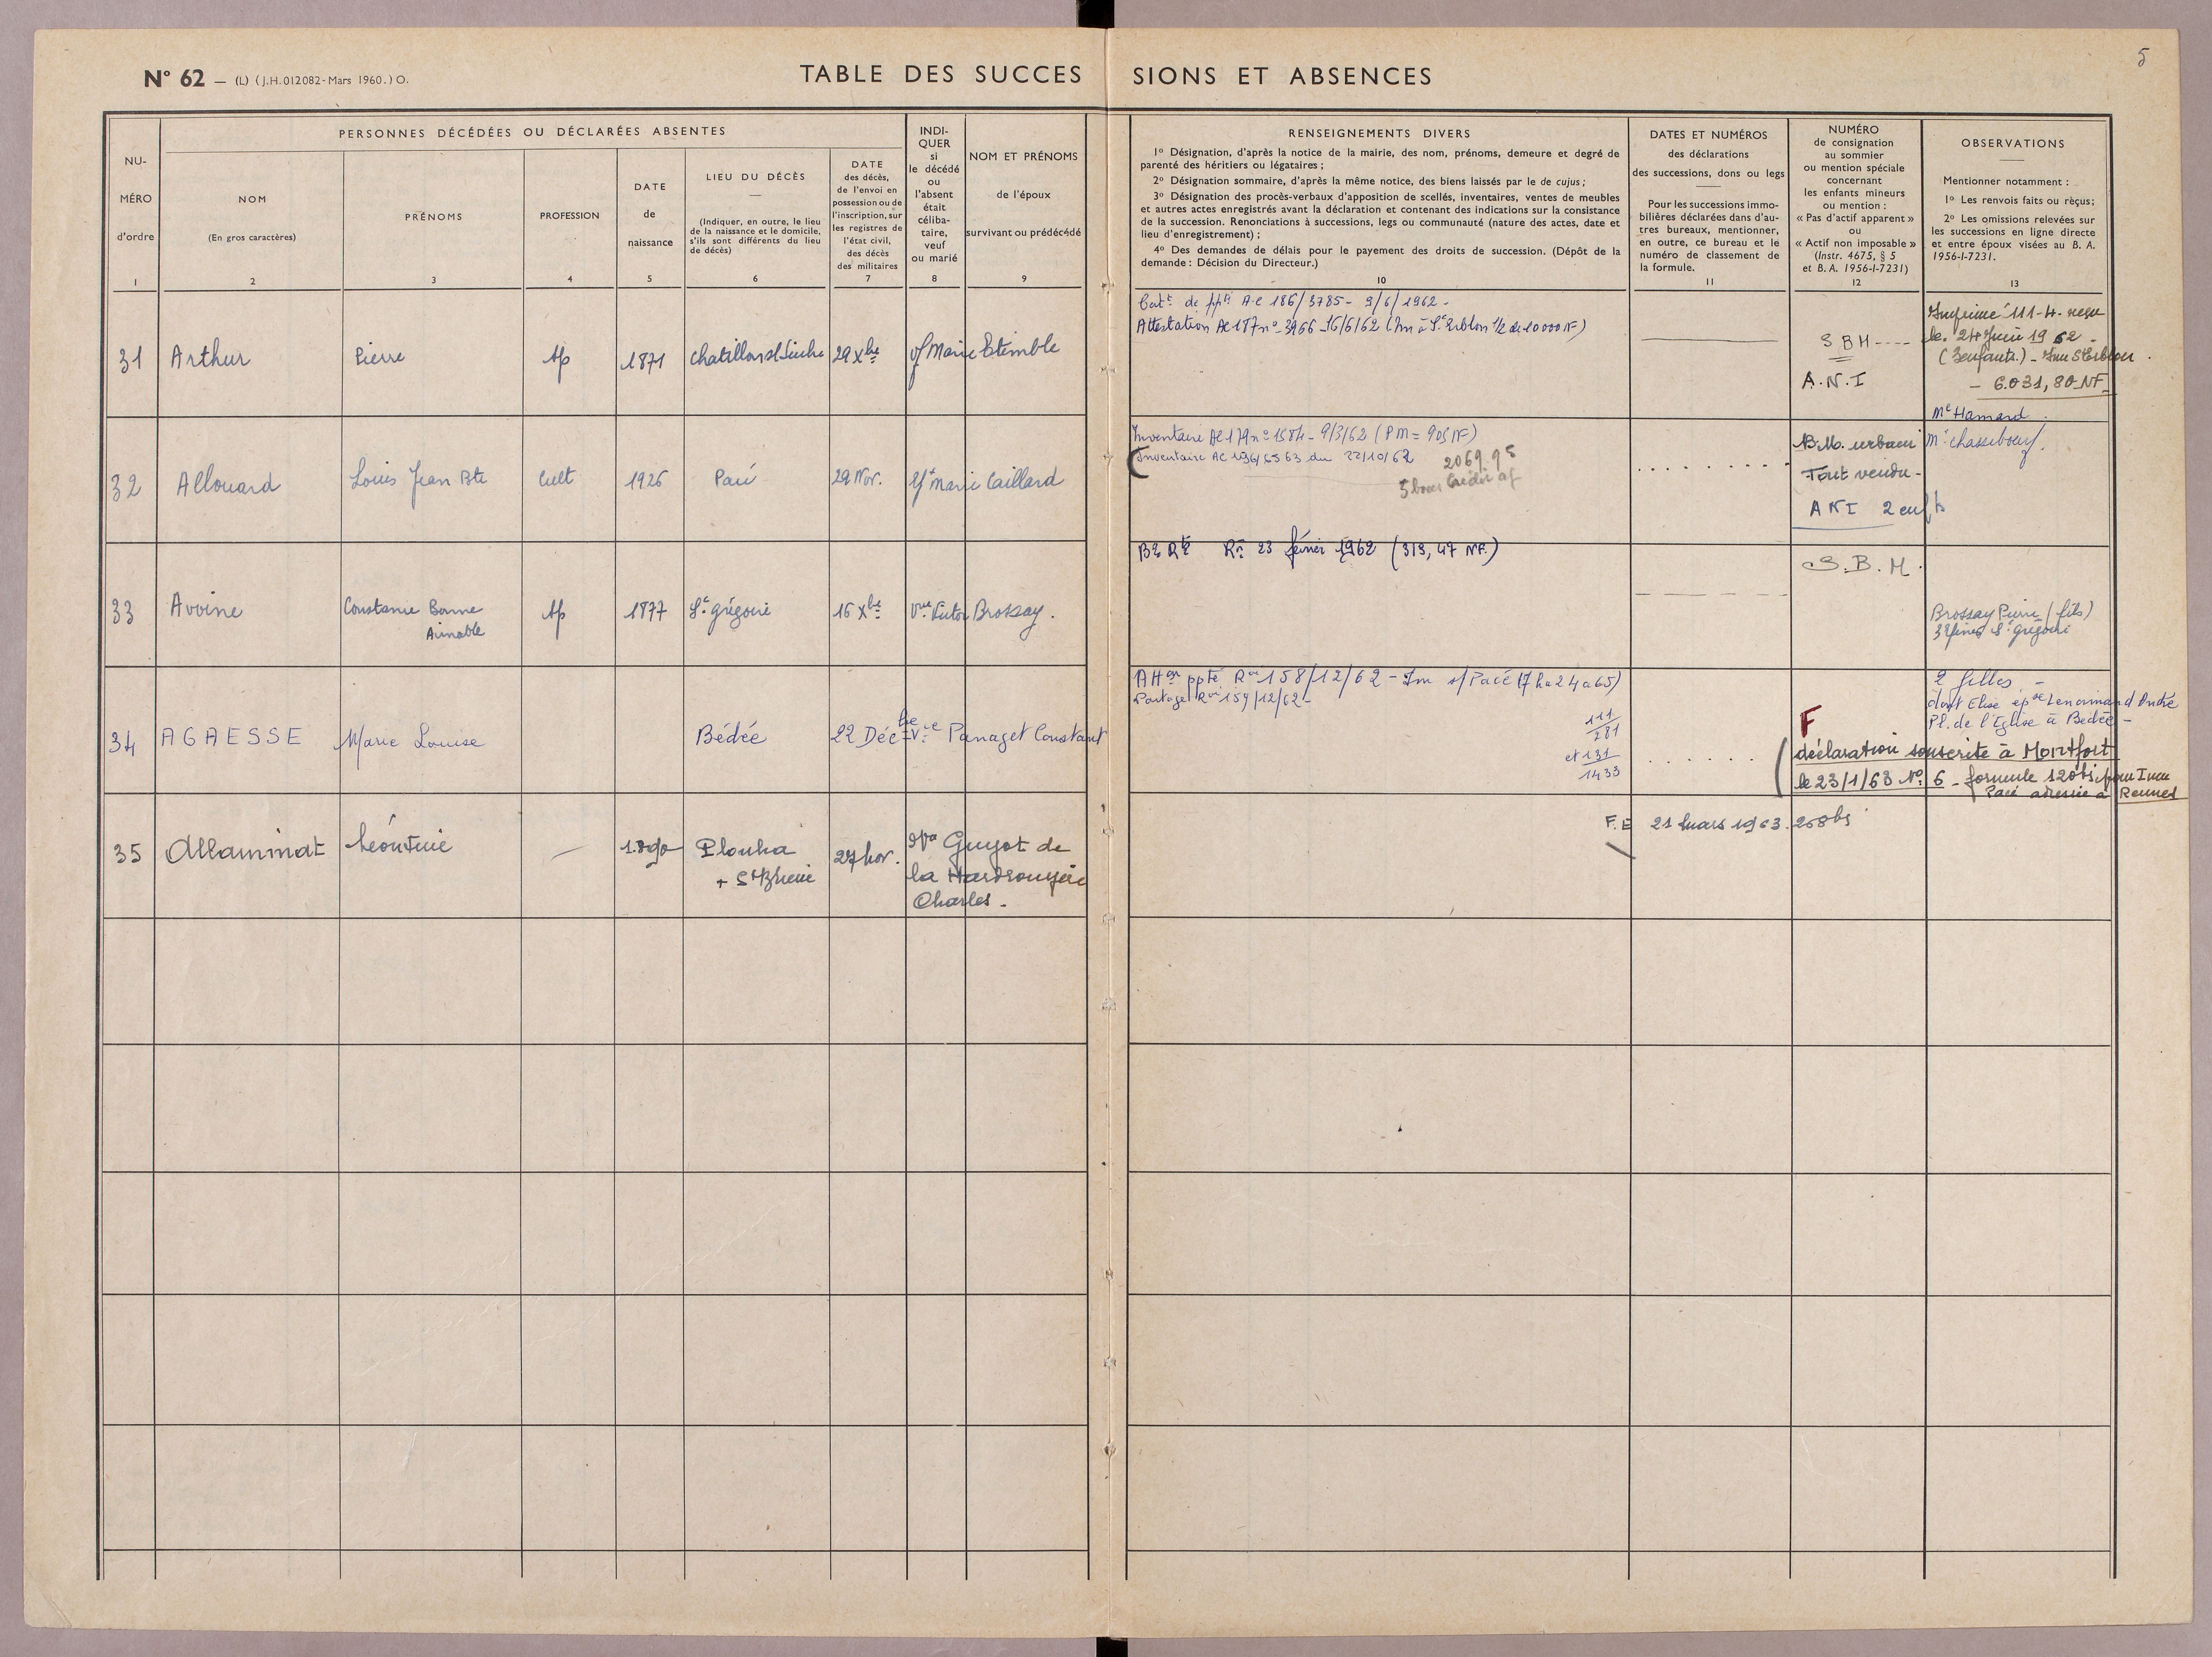 5
N° 62 — (L) (J.H. 012082 - Mars 1960.) O.
TABLE DES SUCCESSIONS ET ABSENCES
NU-
MÉRO
d'ordre
1
PERSONNES DÉCÉDÉES OU DÉCLARÉES ABSENTES
NOM
(En gros caractères)
2
PRÉNOMS
3
PROFESSION
4
DATE
de
naissance
5
LIEU DU DÉCÈS
(Indiquer, en outre, le lieu
de la naissance et le domicile,
s'ils sont différents du lieu
de décès)
6
DATE
des décès,
de l'envoi en
possession ou de
l'inscription, sur
les registres de
l'état civil,
des décès
des militaires
7
INDI-
QUER
si
le décédé
ou
l'absent
était
céliba-
taire,
veuf
ou marié
8
NOM ET PRÉNOMS
de l'époux
survivant ou prédécédé
9
RENSEIGNEMENTS DIVERS
1° Désignation, d'après la notice de la mairie, des nom, prénoms, demeure et degré de
parenté des héritiers ou légataires ;
2° Désignation sommaire, d'après la même notice, des biens laissés par le de cujus ;
3° Désignation des procès-verbaux d'apposition de scellés, inventaires, ventes de meubles
et autres actes enregistrés avant la déclaration et contenant des indications sur la consistance
de la succession. Renonciations à successions, legs ou communauté (nature des actes, date et
lieu d'enregistrement) ;
4° Des demandes de délais pour le payement des droits de succession. (Dépôt de la
demande : Décision du Directeur.)
10
DATES ET NUMÉROS
des déclarations
des successions, dons ou legs
Pour les successions immo-
bilières déclarées dans d'au-
tres bureaux, mentionner,
en outre, ce bureau et le
numéro de classement de
la formule.
11
NUMÉRO
de consignation
au sommier
ou mention spéciale
concernant
les enfants mineurs
ou mention :
« Pas d'actif apparent »
ou
« Actif non imposable »
(Instr. 4675, § 5
et B. A. 1956-I-7231)
12
OBSERVATIONS
Mentionner notamment :
1° Les renvois faits ou reçus;
2° Les omissions relevées sur
les successions en ligne directe
et entre époux visées au B. A.
1956-I-7231.
13
31 Arthur Pierre sp 1871 29 Xbre vf Marie Etemble
A.C 186/3785 - 9/6/1962 -
Attestation AC 187 n° 3966 - 16/6/62
S B M ----
A.N.I
Imprimé 111-4. reçu
le 24 Juin 1962 -
(3 enfants.) - Imm St Erblon.
- 6.031,80 NF
Me Hamard.
32 Allouard Louis Jean Bte Cult 1926 Pacé 29 Nov. Marie Caillard
Inventaire AC 179 n° 1584 - 9/3/62 (PM = 905 NF)
Inventaire AC 196/6563 du 22/10/62
2069.95
B.M. urbain
Tout vendu -
A N I 2 enfts
Me Chasseboeuf.
33 Avoine Constance Bonne
Aimable
sp 1877 St Grégoire 16 Xbre Vve Victor Brossay.
23 février 1962 (313,47 NF.)
S.B.M.
Brossay Pierre (fils)
St Grégoire
34 AGAESSE Marie Louise Bédée 22 Décbre Vve Panaget Constant
Atton ppté Ros 158/12/62 - Im s/ Pacé (7 ha 24 a 65)
Partage Ros 159/12/62 -
111/281
et 131/1433
F
déclaration souscrite à Montfort
le 23/1/63 N° 6 - formule 120 bis pour Imm
Pacé adressée à Rennes
2 filles -
dont Elise epse Lenormand André
Pl. de l'Eglise à Bédée -
35 Allaminat Léontine — 1890 Plouha
+ St Brieuc
27 nov. Vve Guyot de
la Hardrouyère
Charles -
F.E 21 Mars 1963. 268 bis